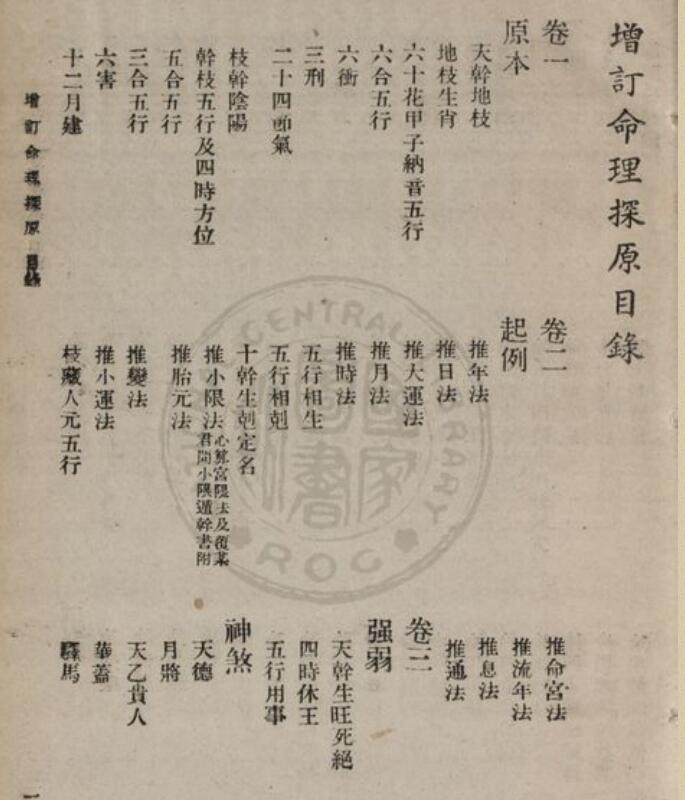 增訂命理探原目錄
卷一
原本
天幹地枝
地枝生肖
六十花甲子納音五行
六合五行
六衝
三刑
二十四節氣
枝幹陰陽
幹枝五行及四時方位
五合五行
三合五行
六害
十二月建
卷二
起例
推年法
推日法
推大運法
推月法
推時法
五行相生
五行相剋
十幹生剋定名
推小限法心算宮限法及復某君問小限遁幹書附
推胎元法
推變法
推小運法
枝藏人元五行
推命宮法
推流年法
推息法
推通法
卷三
强弱
天幹生旺死絕
四時休王
五行用事
神煞
天德
月將
天乙貴人
華蓋
驛馬
增訂命理探原 目錄
一
CENTRAL LIBRARY
ROC